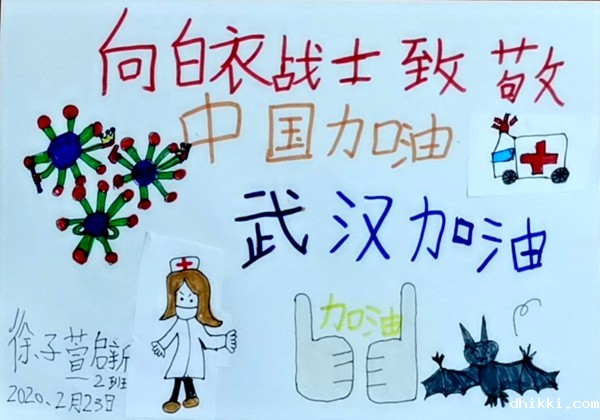 向白衣战士致敬
中国加油
武汉加油
加油
徐子萱启新
一2班
2020.2月23日
dhikki.com